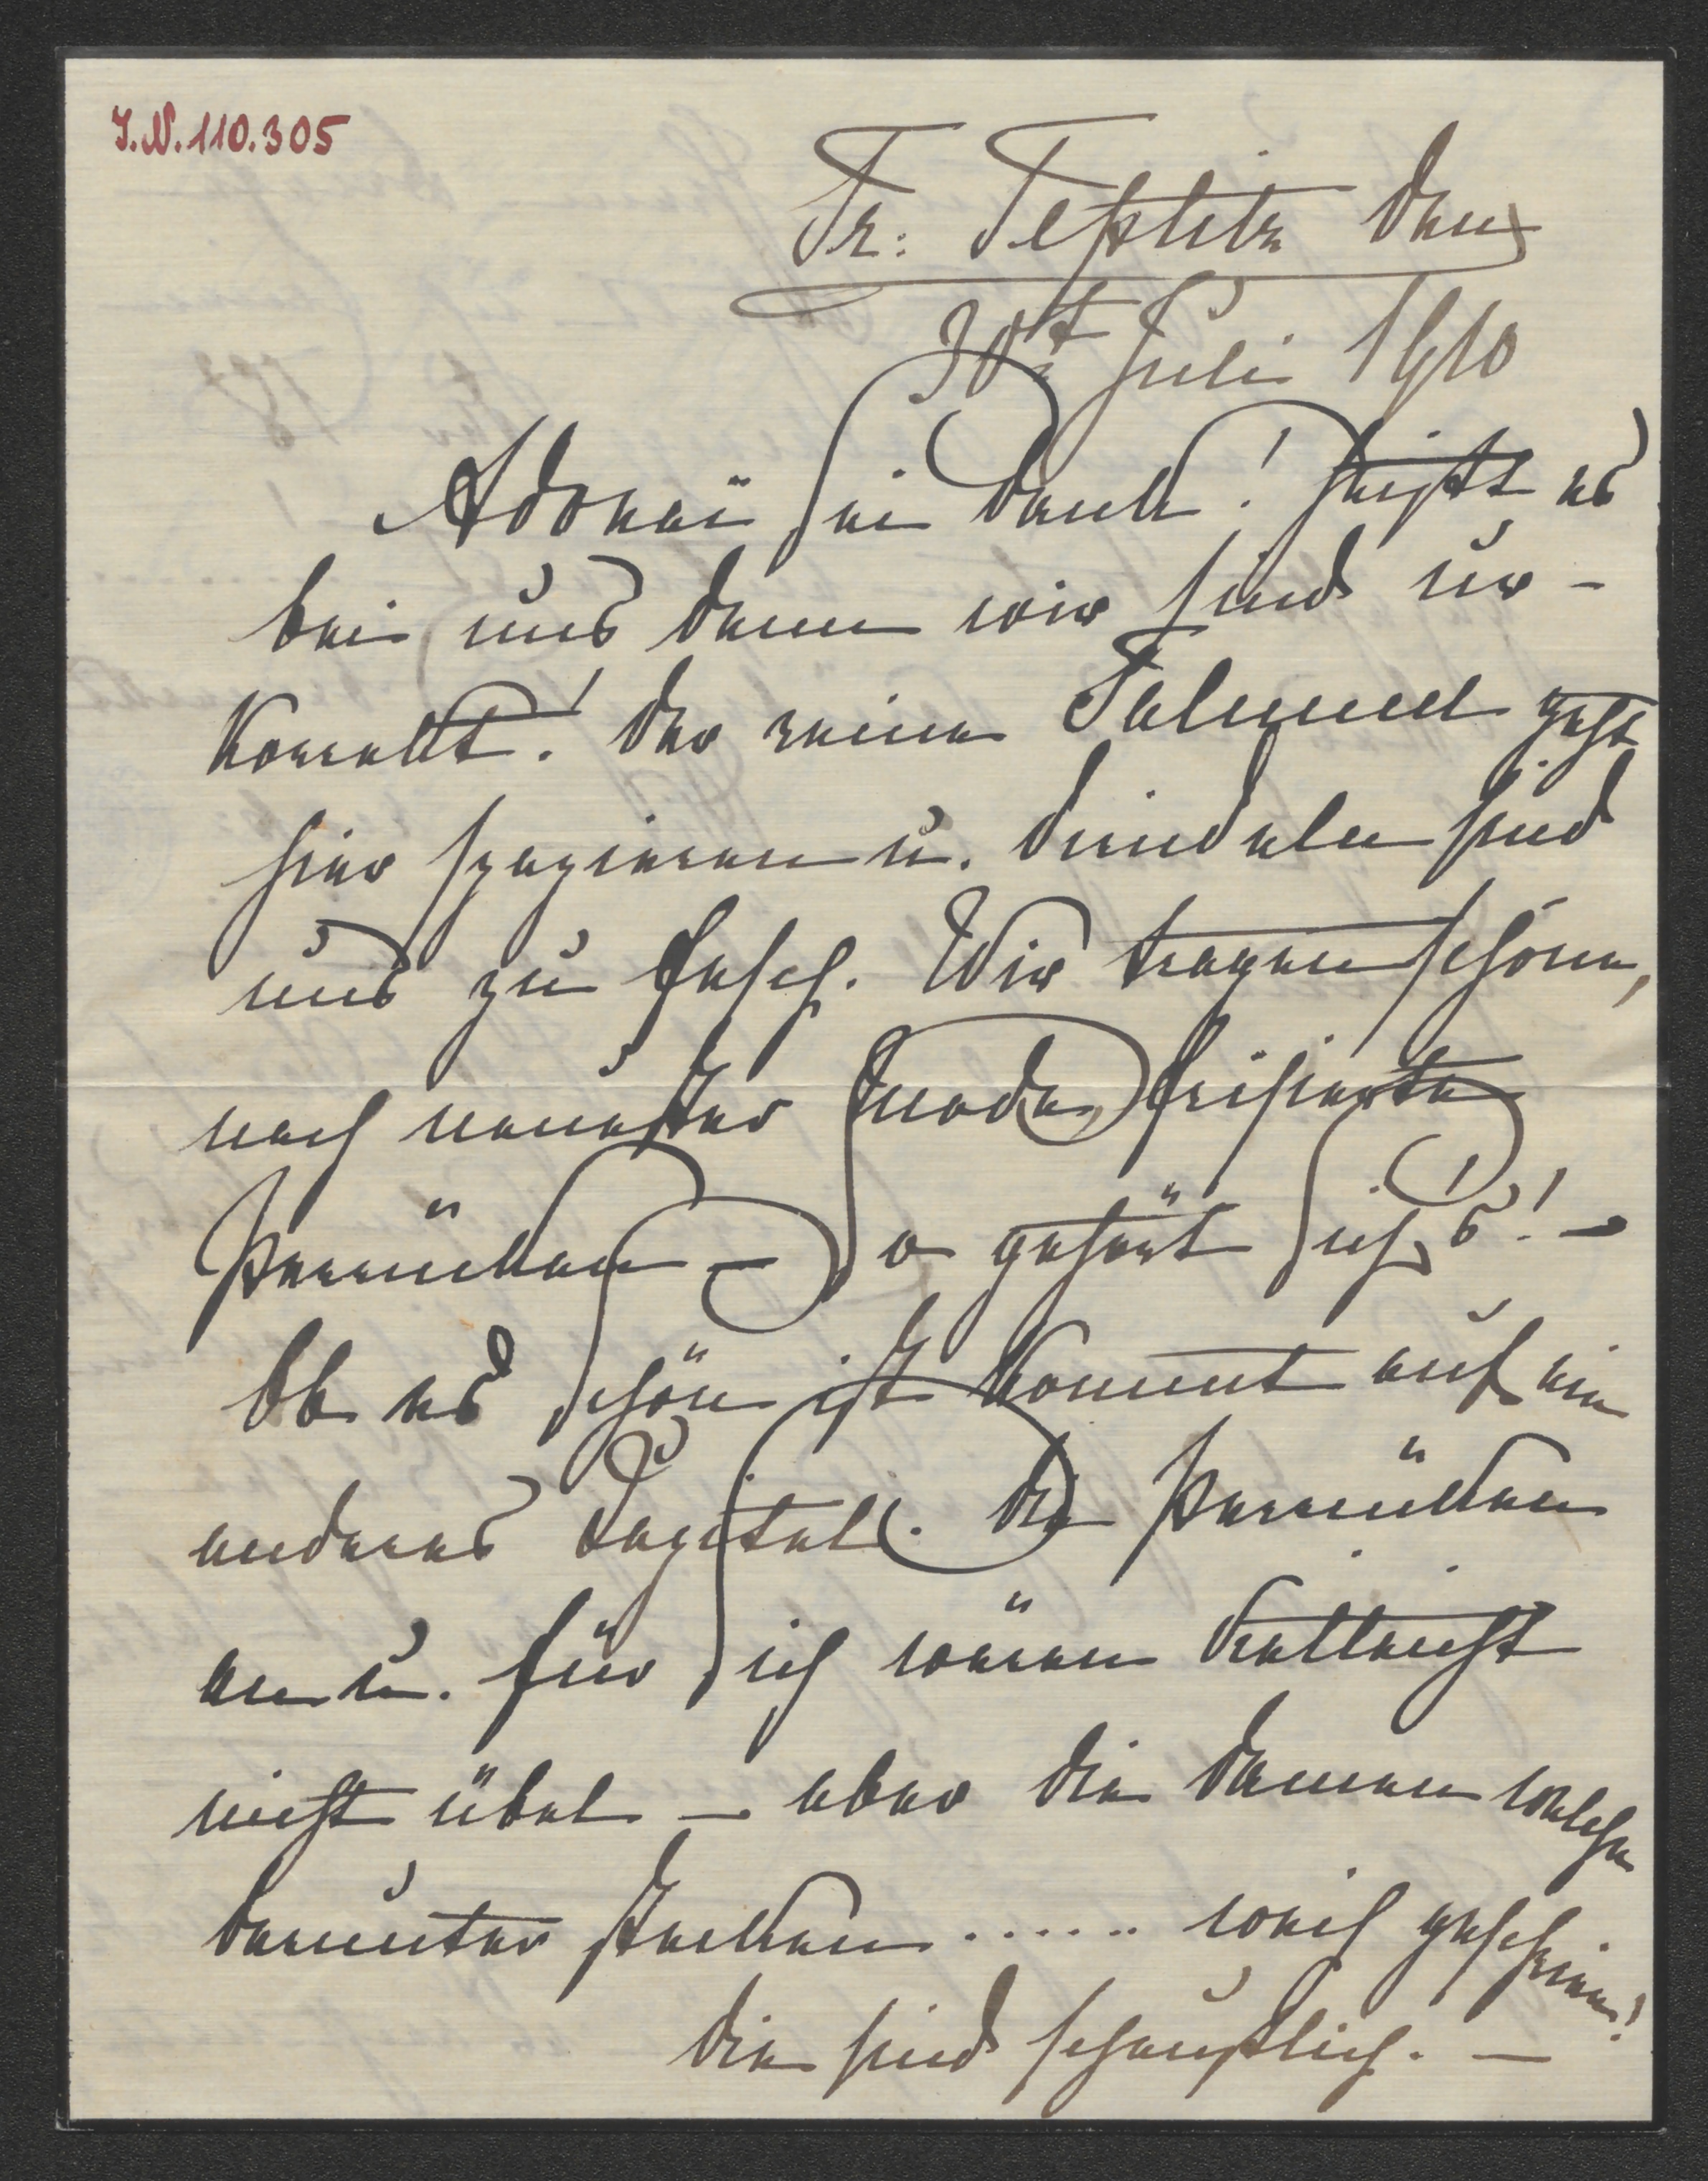 I.N. 110.305
Tr. Teplitz den
30t Juli 1910
Adonai sei Dank! heißt es
bei uns denn wir sind ur-
korrekt! Der reine Talmud geht
hier spazieren u. drind alen sind
uns zu fesch. Wir tragen schöne,
nach neuester Mode frisierte
Perrücken – So gehört sich's! –
Ob es schön ist kommt auf ein
anderes Capitel. Die Perrücken
an u. für sich wären vielleicht
nicht übel – aber die Damen welche
darunter stecken ...... waih geschrien!
die sind scheußlich. –